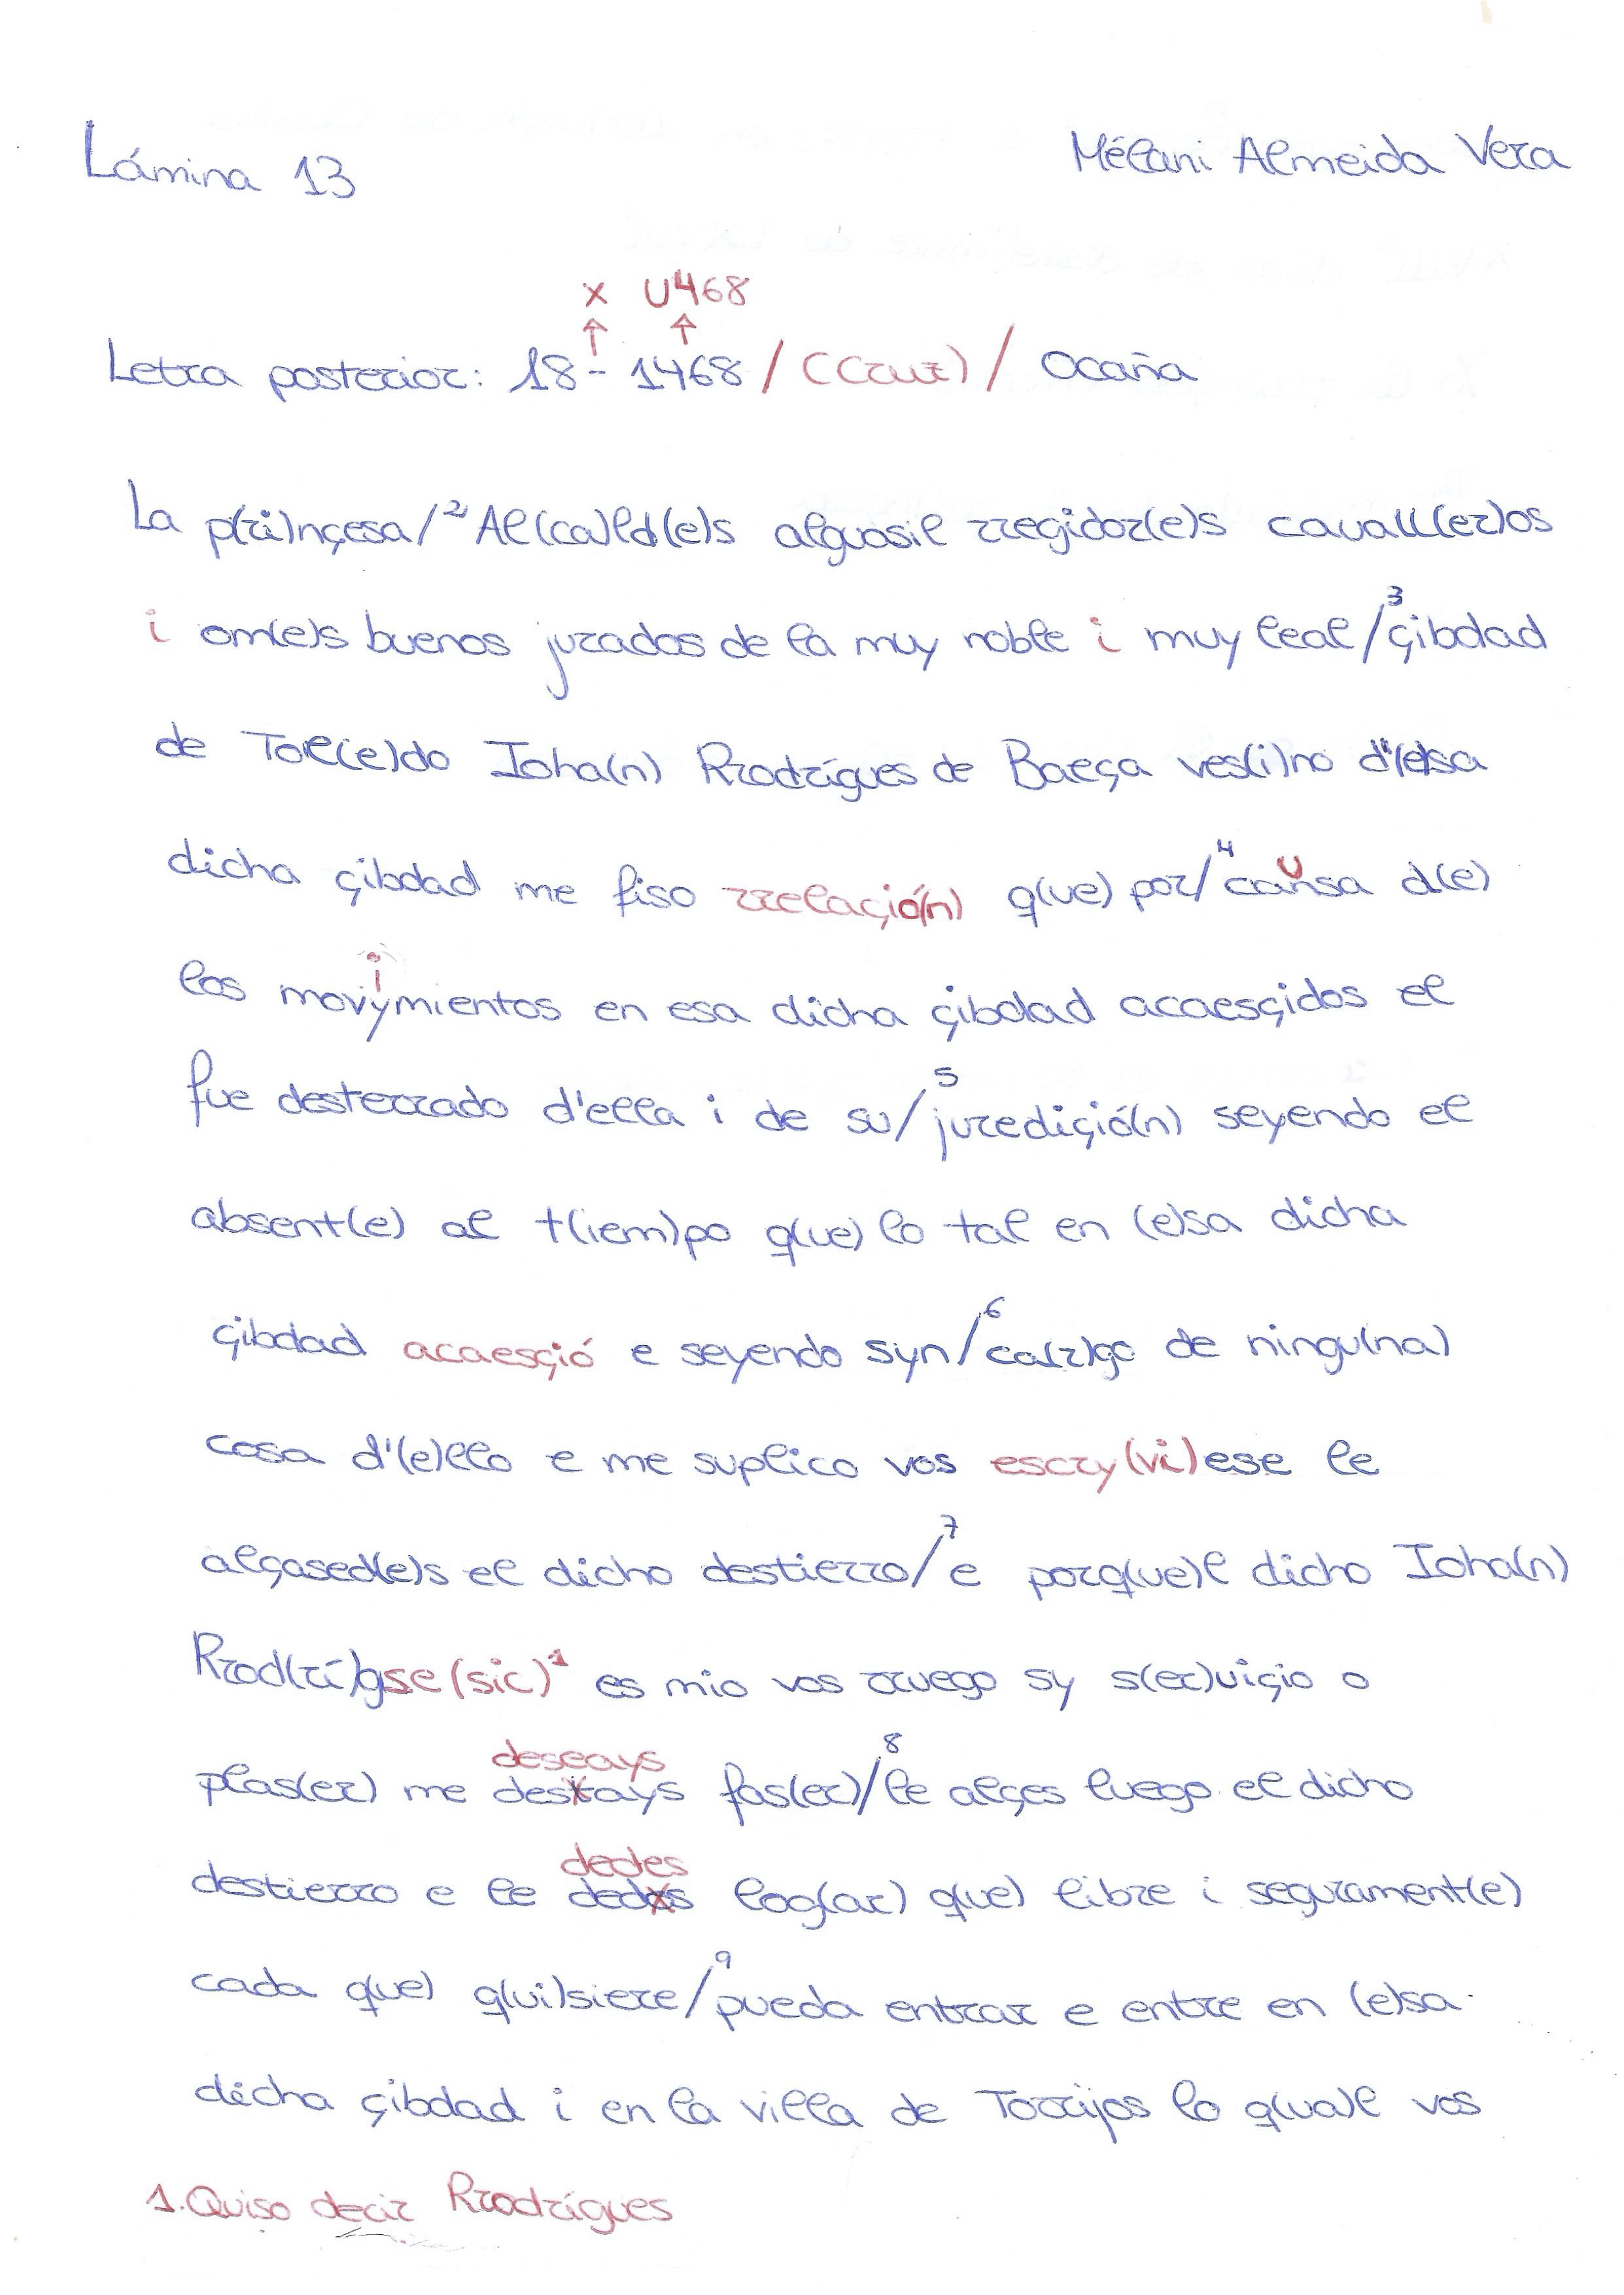 Lámina 13
Mélani Almeida Vera
x U468
Letra posterior: 18- 1468 / (Cruz) / Ocaña
La p(ri)nçesa/² Al(ca)ld(e)s alguasil rregidor(e)s cavall(er)os
i om(e)s buenos jurados de la muy noble i muy leal /³ çibdad
de Tol(e)do Ioha(n) Rrodrígues de Baeça ves(i)no d'(e)sa
dicha çibdad me fiso rrelaçió(n) q(ue) por/⁴ causa d(e)
los movymientos en esa dicha çibdad acaesçidos el
fue desterrado d'ella i de su/⁵ juredigió(n) seyendo el
absent(e) al t(iem)po q(ue) lo tal en (e)sa dicha
çibdad acaesçió e seyendo syn/⁶ ca(r)go de ningu(na)
cosa d'(e)llo e me suplico vos escry(vi)ese le
alçased(e)s el dicho destierro/⁷ e porq(ue)l dicho Ioha(n)
Rrod(rí)gse (sic)¹ es mio vos rruego sy s(er)uiçio o
deseays
plas(er) me desays fas(er)/⁸ le alçes luego el dicho
dedes
destierro e le dedes log(ar) q(ue) libre i segurament(e)
cada q(ue) q(ui)siere/⁹ pueda entrar e entre en (e)sa
dicha çibdad i en la villa de Torrijos lo q(ua)l vos
1. Quiso decir Rrodrígues